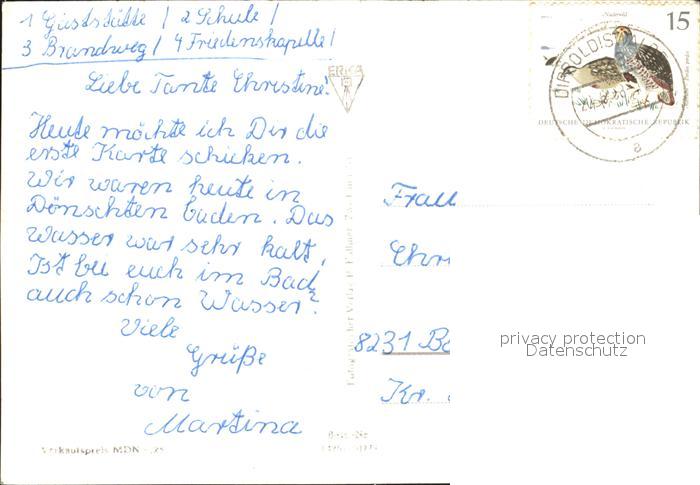 1 Gaststätte / 2 Schule /
3 Brandweg / 4 Friedenskapelle /
Liebe Tante Christine!
Heute möchte ich Dir die
erste Karte schicken.
Wir waren heute in
Dönschten baden. Das
Wasser war sehr kalt.
Ist bei euch im Bad
auch schon Wasser?
Viele
Grüße
von
Martina
Verkaufspreis MDN
ERIKA
15
DEUTSCHE DEMOKRATISCHE REPUBLIK
a
Frau
Chri
8231 Bä
Kr.
privacy protection
Datenschutz